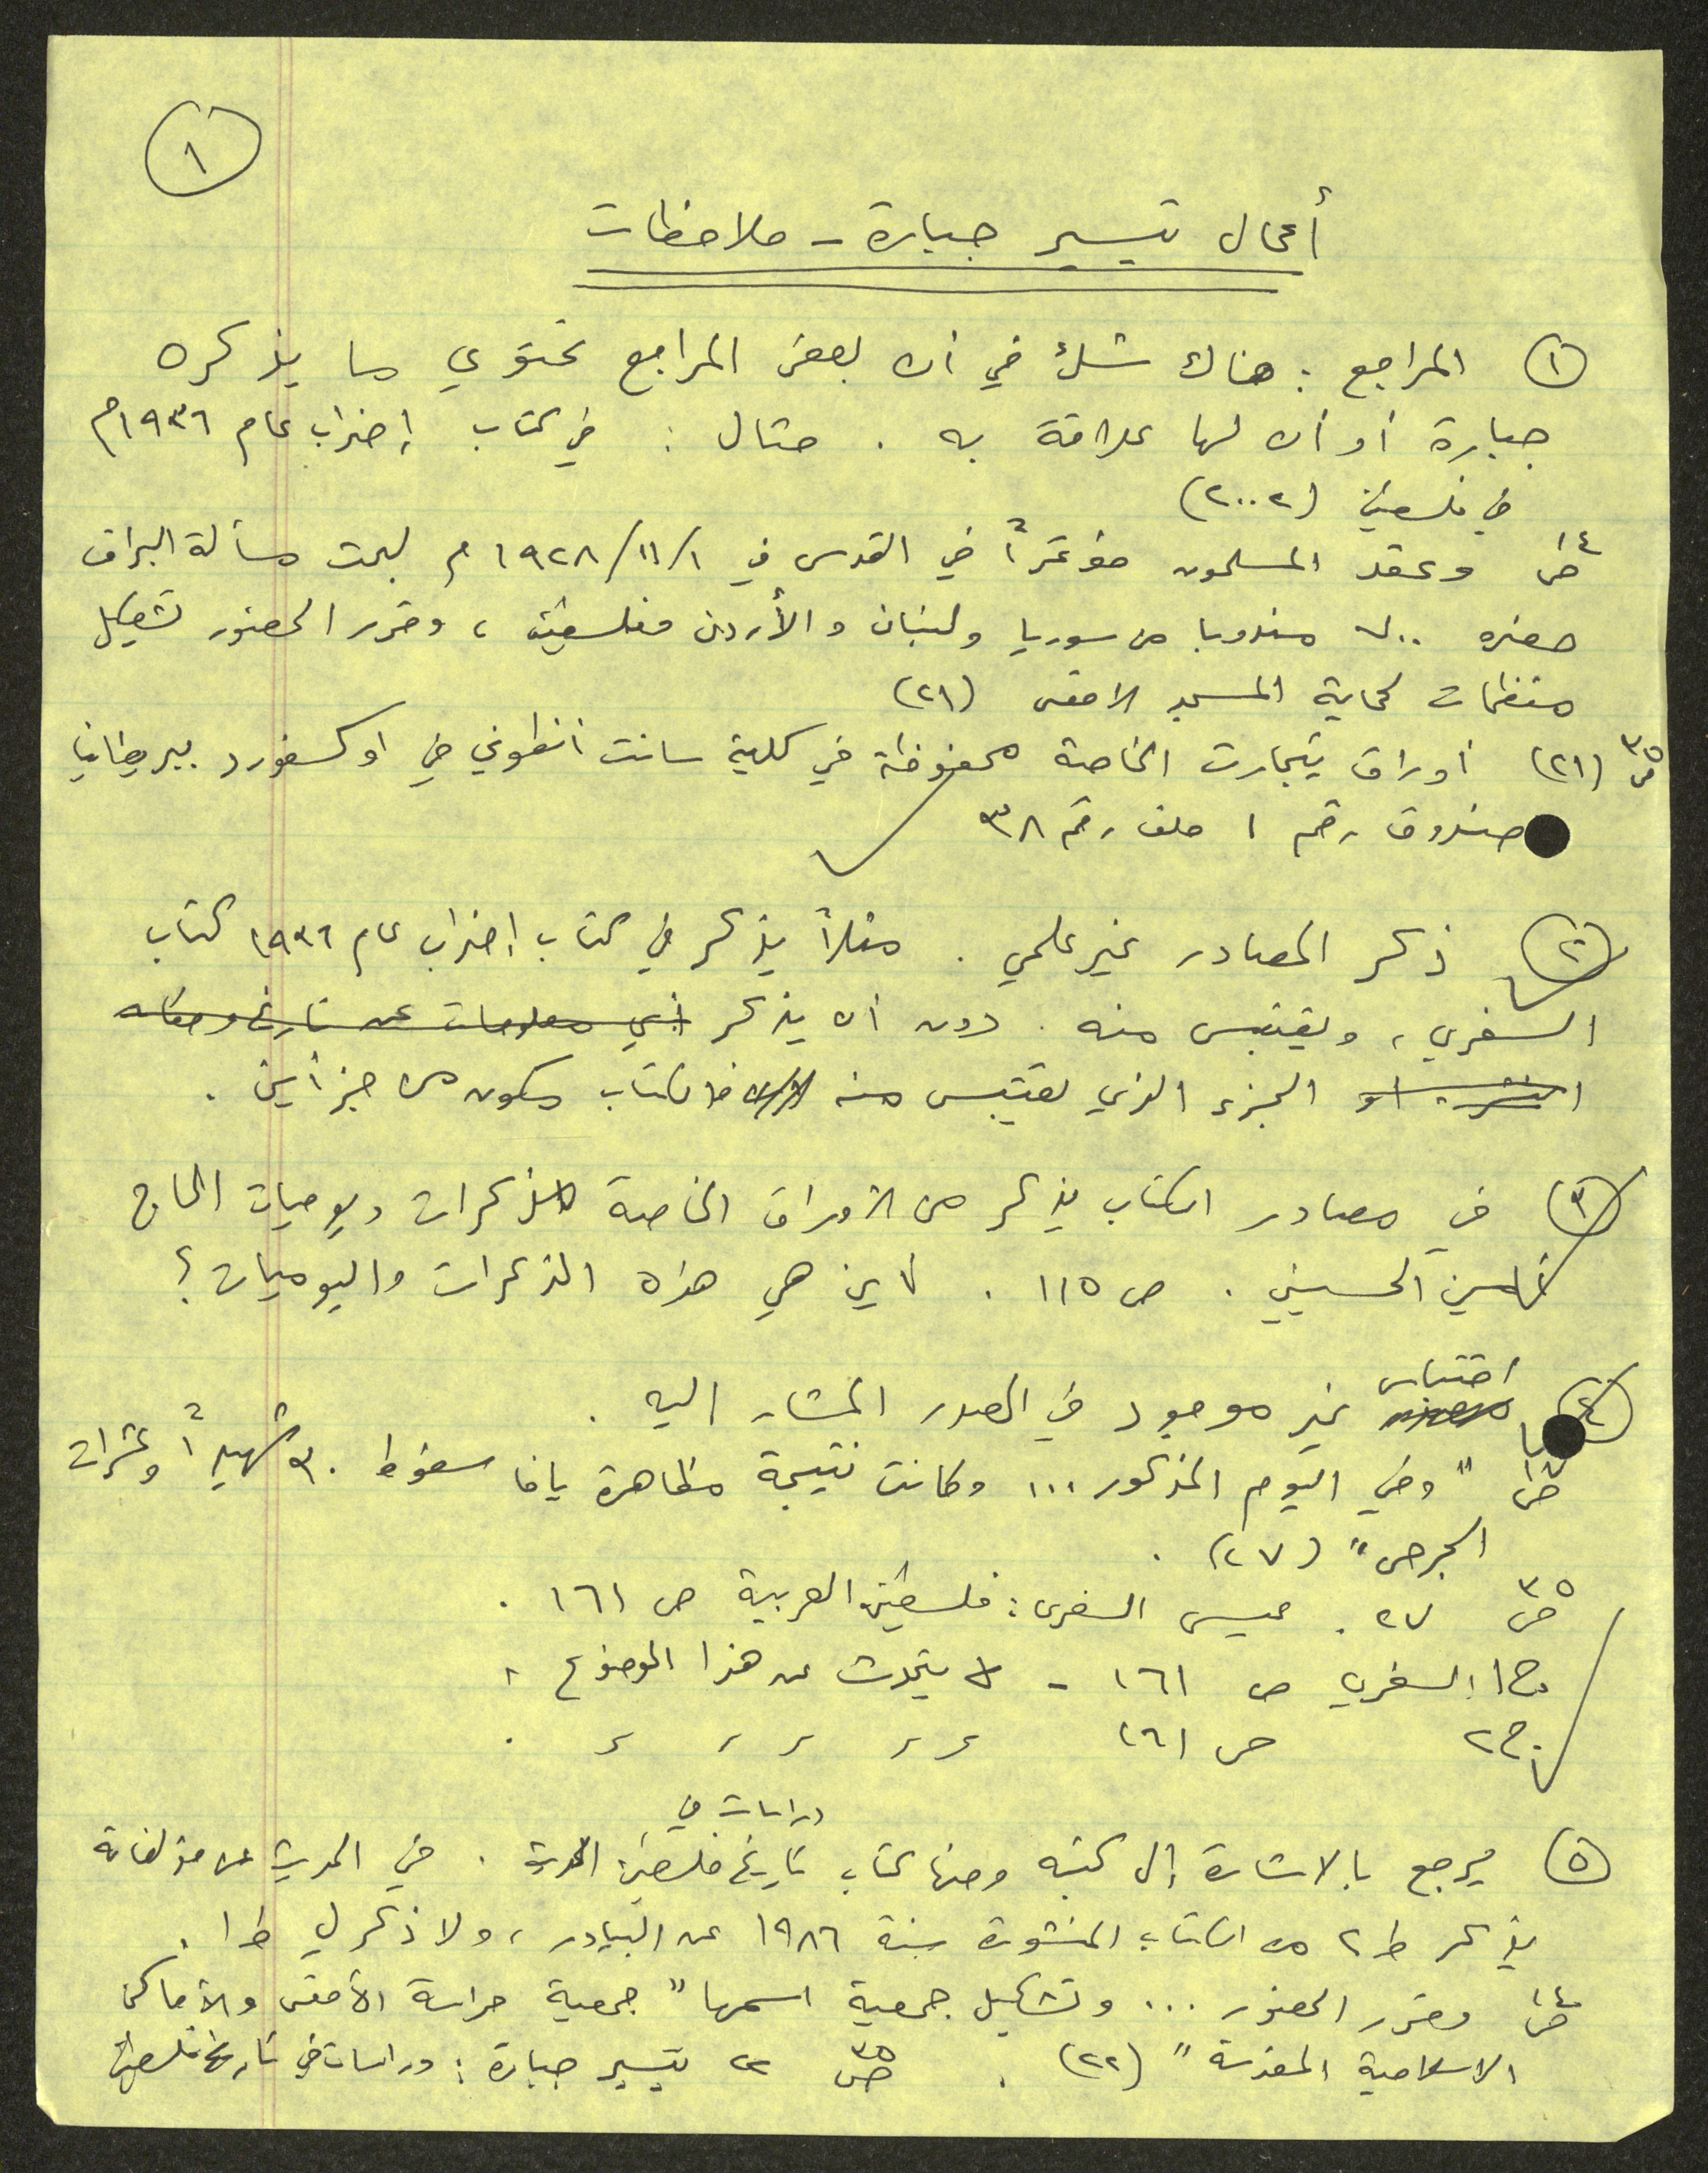 ١
أعمال تيسير جبارة - ملاحظات
١ المراجع : هناك شك في أن بعض المراجع تحتوي ما يذكره
جبارة أو أن لها علاقة به . مثال : في كتاب إضراب عام ١٩٣٦م
في فلسطين (٢٠٠٢)
ص١٤ وعقد المسلمون مؤتمراً في القدس في ١/١١/١٩٢٨ م لبحث مسألة البراق
حضره ٧٠٠ مندوبا من سوريا ولبنان والأردن وفلسطين ، وقرر الحضور تشكيل
منظمات لحماية المسجد الاقصى (٢١)
ص٣٥ (٢١) أوراق تيجارت الخاصة محفوظة في كلية سانت انطوني في اوكسفورد ببريطانيا
صندوق رقم ١ ملف رقم ٣٨
٢ ذكر المصادر غير علمي . مثلاً يذكر في كتاب إضراب عام ١٩٣٦ كتاب
السفري ، ويقتبس منه . دون أن يذكر أي معلومات عن تاريخ ومكان
النشر . او الجزء الذي يقتبس منه فالكتاب مكون من جزأين .
٣ في مصادر الكتاب يذكر من الأوراق الخاصة مذكرات ويوميات الحاج
أمين الحسيني . ص ١١٥ . أين هي هذه المذكرات واليوميات ؟
اقتباس
٤ غير موجود في المصدر المشار اليه .
ص١٧ " وفي اليوم المذكور ... وكانت نتيجة مظاهرة يافا سقوط ٣٠ شهيداً وعشرات
الجرحى " (٢٧) .
ص٣٥ ٢٧ . عيسى السفري : فلسطين العربية ص ١٦١ .
ج١ السفري ص ١٦١ - لا يتحدث عن هذا الموضوع .
ج٢ ص ١٦١ 〃 〃 〃 〃 〃 .
دراسات في
٥ يرجع بالاشارة إلى كتبه ومنها كتاب تاريخ فلسطين الحديث . في الحديث عن مؤلفاته
يذكر ط ٢ من الكتاب المنشورة سنة ١٩٨٦ عن البيادر ، ولا ذكر ل ط ١ .
ص١٤ وقرر الحضور ... وتشكيل جمعية اسمها " جمعية حراسة الأقصى والأماكن
الاسلامية المقدسة " (٢٢) . ص٣٥ ٢٢ تيسير جبارة : دراسات في تاريخ فلسطين